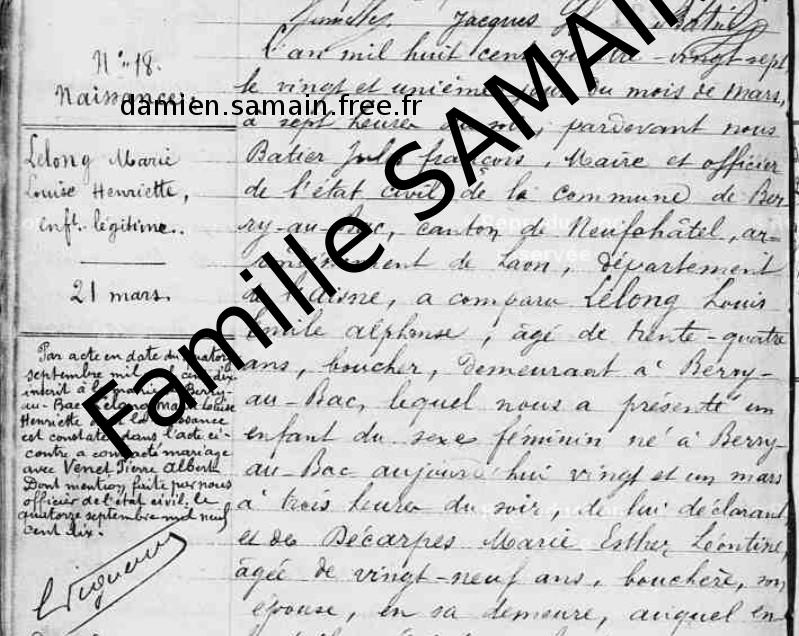 Jacques
L'an mil huit cent quatre-vingt-sept
le vingt et unième jour du mois de Mars,
à sept heures du soir, pardevant nous
Batier Jules françois, Maire et officier
de l'état civil de la commune de Ber-
ry-au-Bac, canton de Neufchâtel, ar-
rondissement de Laon, département
de l'aisne, a comparu Lelong Louis
Emile alphonse, âgé de trente-quatre
ans, boucher, demeurant à Berry-
au-Bac, lequel nous a présenté un
enfant du sexe féminin né à Berry-
au-Bac aujourd'hui vingt et un mars
à trois heures du soir, de lui déclarant
et de Décarpes Marie Esther Léontine,
âgée de vingt-neuf ans, bouchère, son
épouse, en sa demeure, auquel en-
N° 18.
Naissance.
Lelong Marie
Louise Henriette,
enft. légitime.
21 mars.
Par acte en date du quatorze
septembre mil neuf cent dix
inscrit à la mairie de Berry-
au-Bac Lelong Marie Louise
Henriette dont la naissance
est constatée dans l'acte ci-
contre a contracté mariage
avec Venet Pierre Albert
Dont mention faite par nous
officier de l'état civil, le
quatorze septembre mil neuf
cent dix.
damien.samain.free.fr
Famille SAMAIN